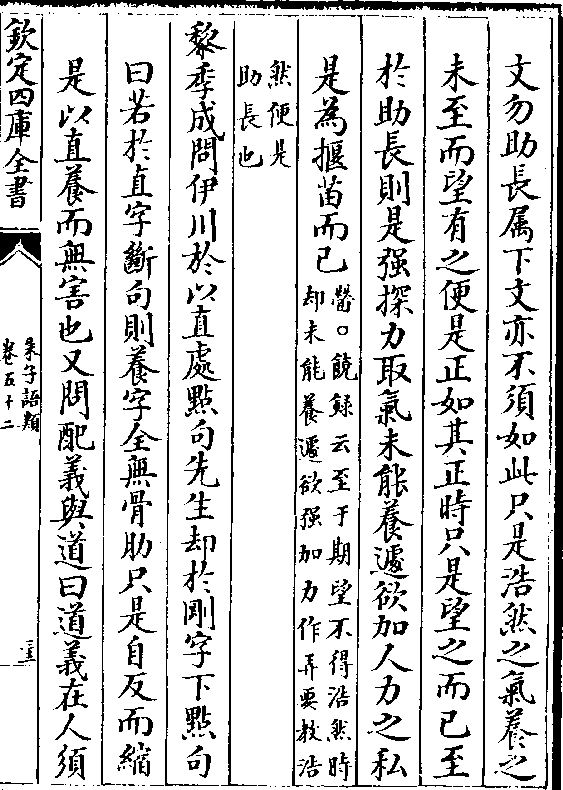 文勿助長属下文亦不須如此只是浩然之氣養之
未至而望有之便是正如其正時只是望之而已至
於助長則是强探力取氣未能養遽欲加人力之私
是為揠苗而已㽦○饒録云至于期望不得浩然時
却未能養遽欲强加力作弄要教浩
然便是
助長也
黎季成問伊川於以直處點句先生却於剛字下點句
曰若於直字斷句則養字全無骨肋只是自反而縮
是以直養而無害也又問配義與道曰道義在人須
欽定四庫全書
朱子語類
卷五十二